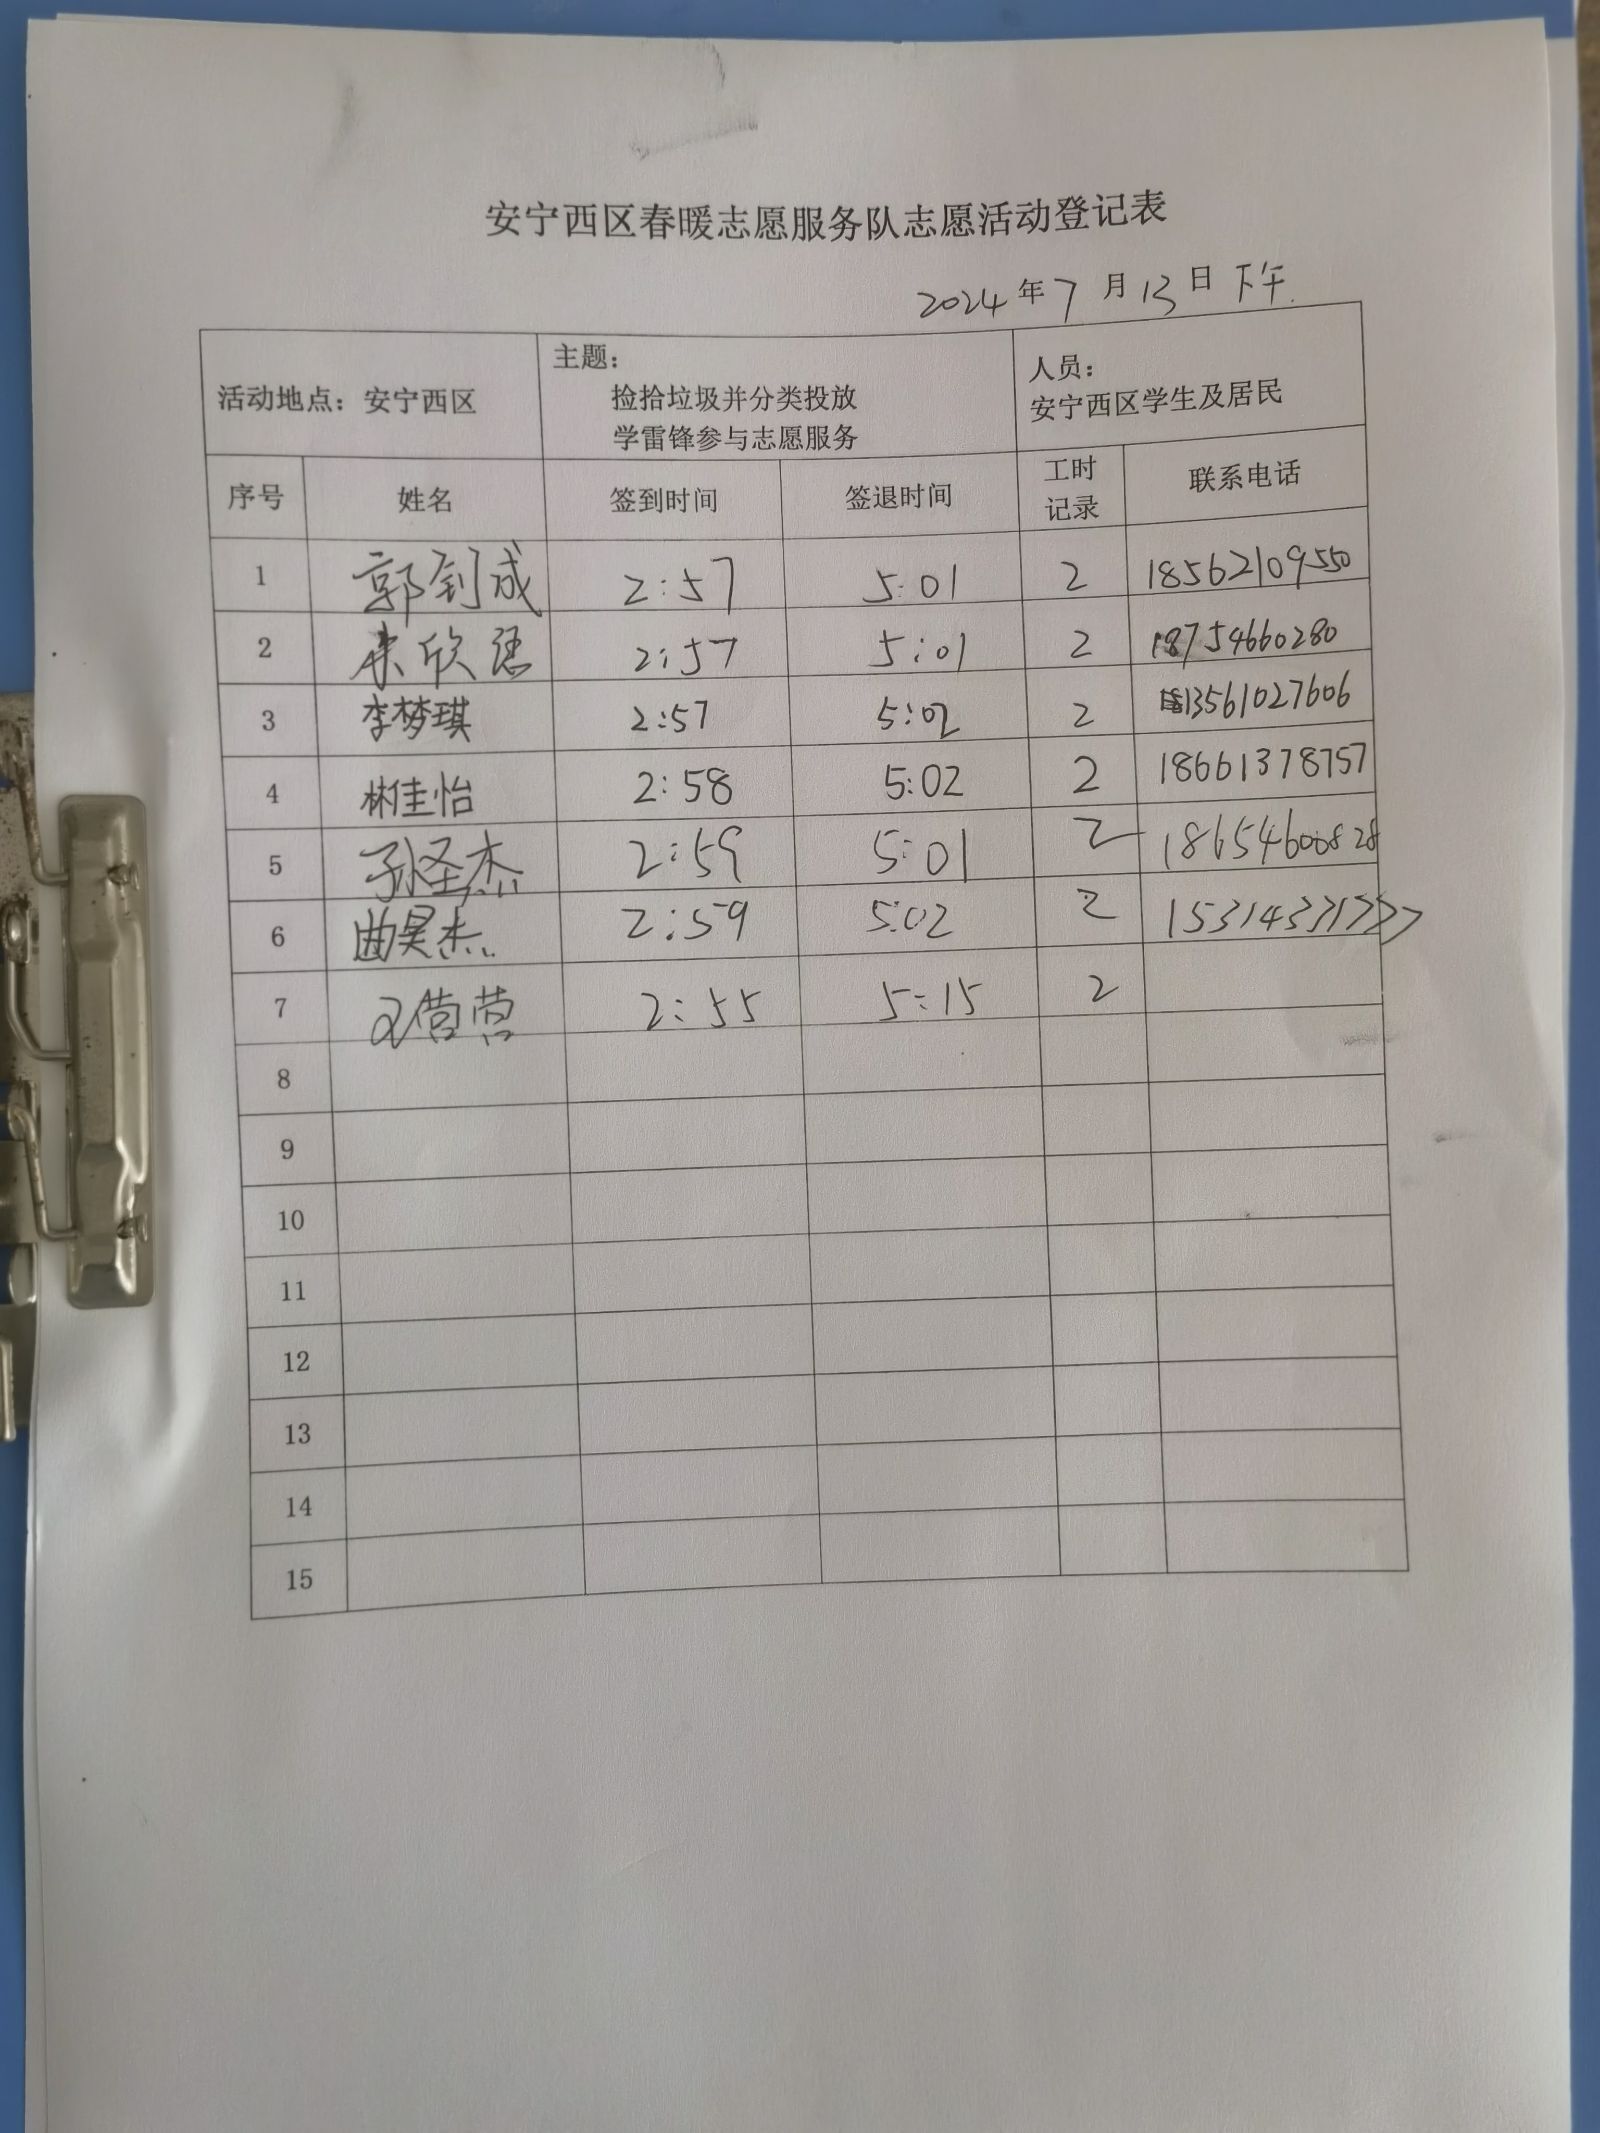 安宁西区春暖志愿服务队志愿活动登记表
2024年7月13日下午
活动地点：安宁西区
主题：
捡拾垃圾并分类投放
学雷锋参与志愿服务
人员：
安宁西区学生及居民
序号 姓名 签到时间 签退时间 工时记录 联系电话
1 郭钊成 2:57 5:01 2 18562109550
2 2:57 5:01 2 18754660280
3 李梦琪 2:57 5:02 2 13561027606
4 林佳怡 2:58 5:02 2 18661378757
5 孙圣杰 2:59 5:01 2 18654600828
6 曲昊杰 2:59 5:02 2 15314331777
7 2:55 5:15 2
8
9
10
11
12
13
14
15